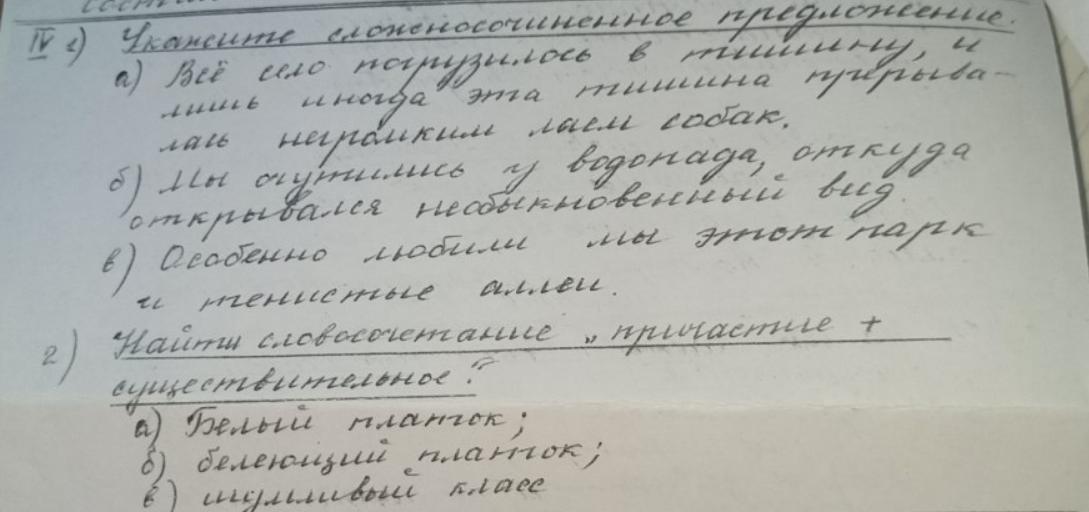 IV 1) Укажите сложносочиненное предложение.
а) Всё село погрузилось в тишину, и
лишь иногда эта тишина прерыва-
лась негромким лаем собак.
б) Мы очутились у водопада, откуда
открывался необыкновенный вид.
в) Особенно любили мы этот парк
и тенистые аллеи.
2) Найти словосочетание „причастие +
существительное?
а) Белый платок;
б) белеющий платок;
в) шумливый класс